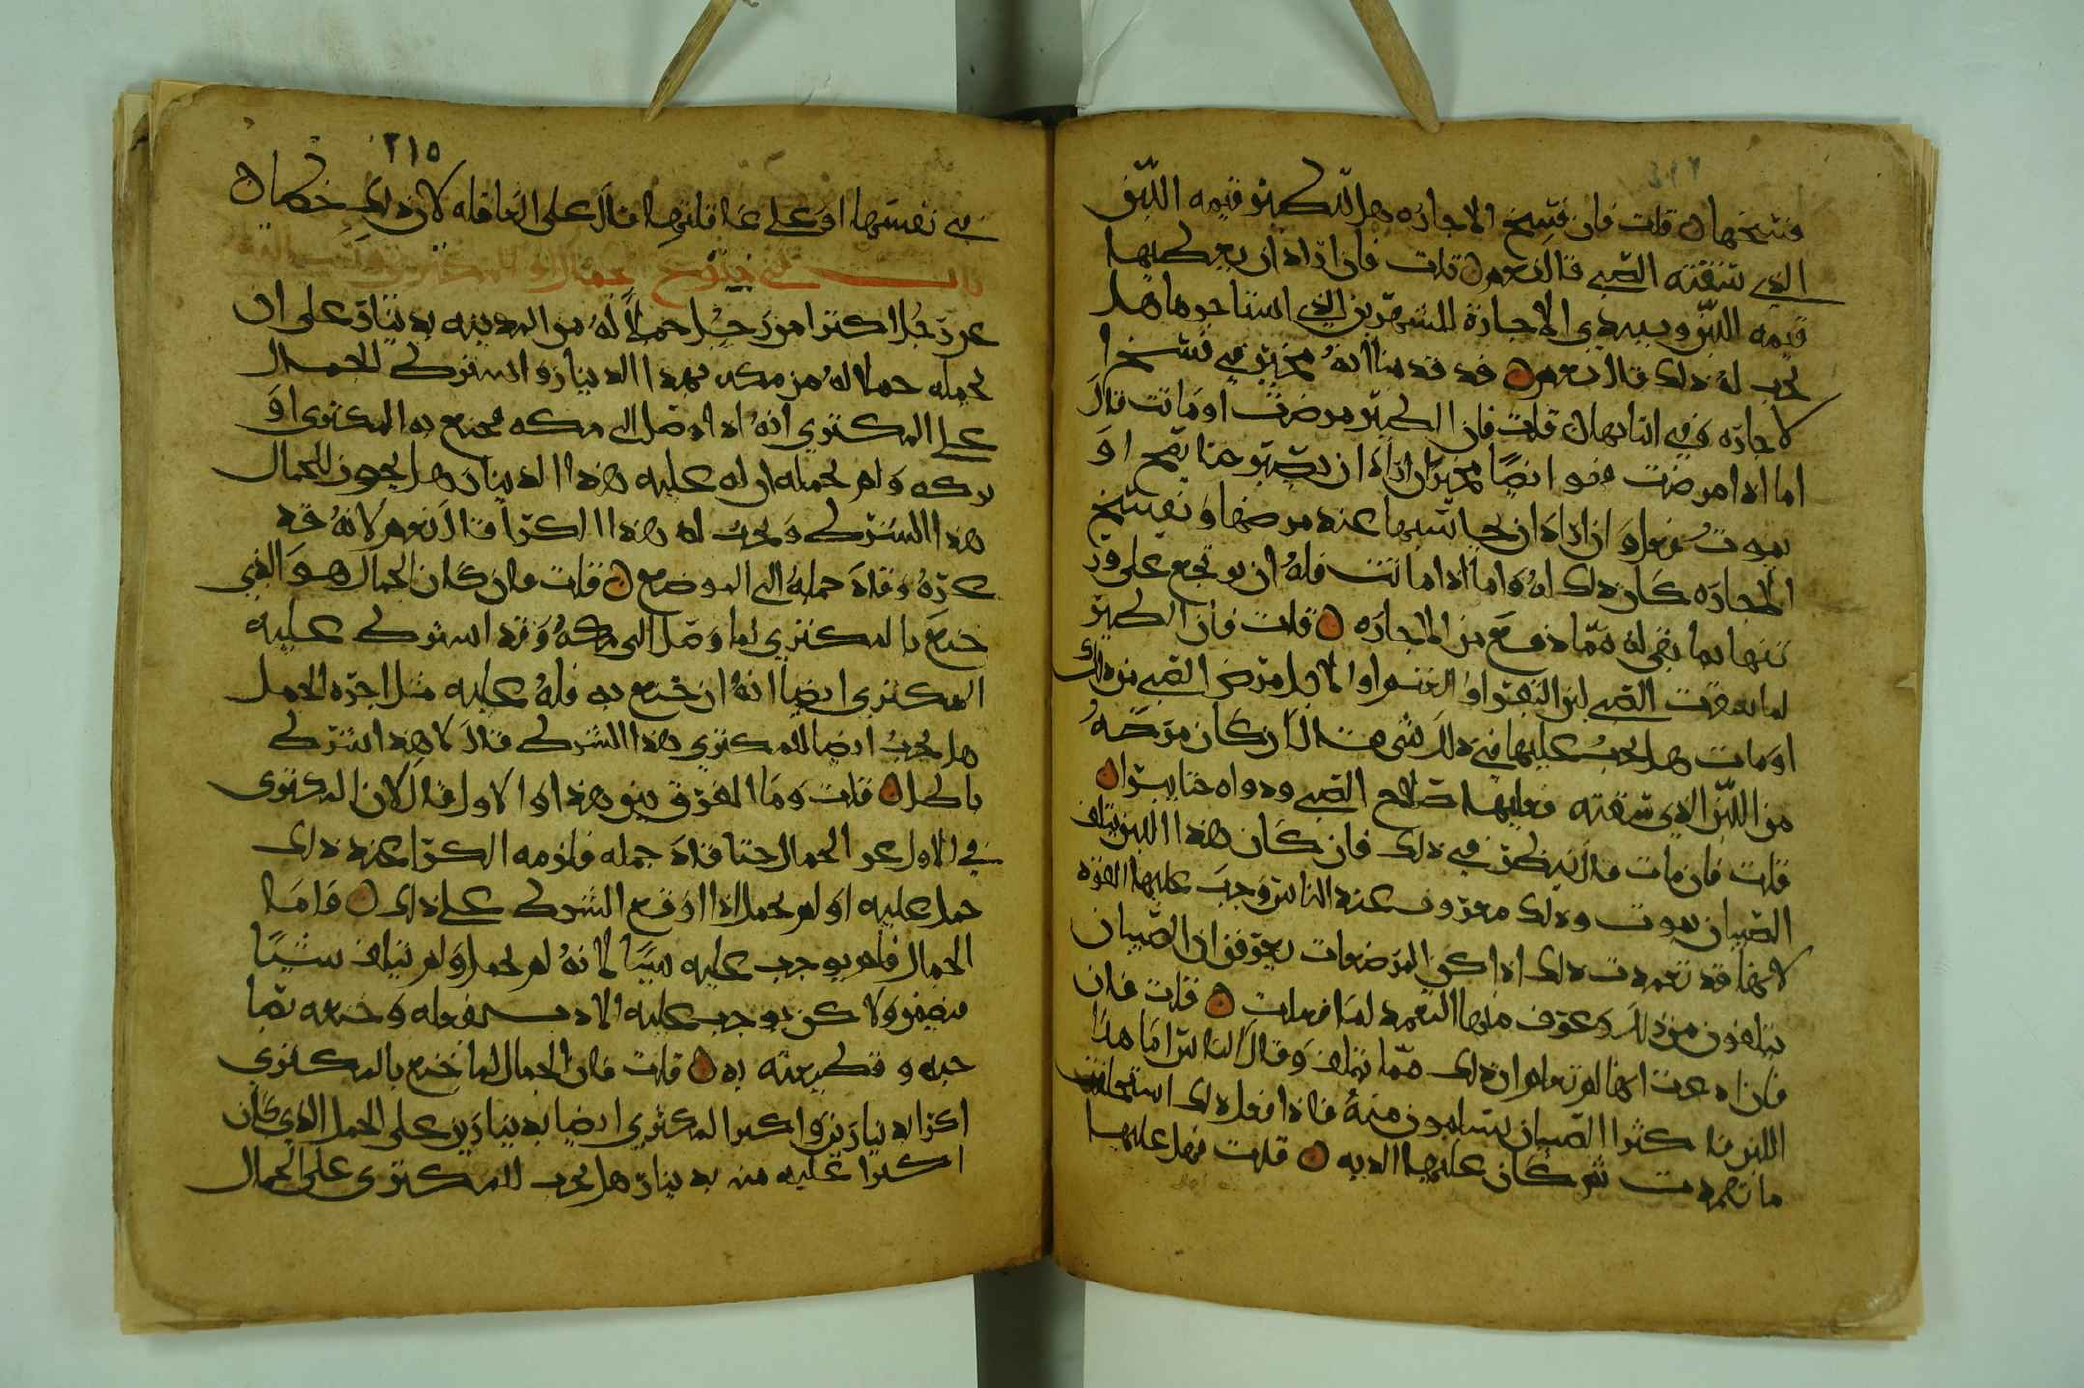 فسخها قلت فان فسخ الاجاره هل للطير قيمه اللبن
الذي سقته الصبي قال نعم قلت فان اراد ان يعطيها
قيمه اللبن وبيدي الاجارة للشهرين الذي استاجرها هل
يجب له ذلك قال نعم قد قدمنا انه مخير في فسخ ا
لاجاره وفي اثباتها قلت فان الطير مرضت او ماتت قال
اما اذا مرضت فهو ايضا مخير ان اراد ان يصبر حتا تصح او
تموت فعل وان اراد ان يحاسبها عند مرضها ويفسخ
الاجاره كان ذلك له واما اذا ماتت فله ان يرجع على ور
ثتها بما بقي له مما دفع من الاجاره قلت فان الطير
لما ارضعت الصبي لبن البقر او الغنم او الابل مرض الصبي من ذلك
او مات هل يجب عليها في ذلك شي قال ان كان مرضه
من اللبن الذي سقته فعليها صلاح الصبي ودواه حتا يبرا
قلت فان مات قال ينظر في ذلك فان كان هذا اللبن يتلف
الصبيان يموت وذلك معروف عند الناس وجب عليها القود
لانها قد تعمدت ذلك اذا كن المرضعات يعرفن ان الصبيان
يتلفون من ذلك وعرف منها التعمد لما فعلت قلت فان
فان ادعت انها لم تعلم ان ذلك مما يتلف وقال الناس اما هذا
اللبن فاكثر الصبيان يسلمون منه فاذا فعل ذلك استحلفت
ما تعمدت ثم كان عليها الديه قلت فهل عليها
٢١٥
في نفسها او على عاقلتها قال على العاقله لان ذلك خطا
باب في
عن رجل اكترا من رجل حملا له من المدينه بدينار على ان
يحمله حملا له من مكه بهذا الدينار واشترط الجمال
على المكتري انه اذا وصل الى مكه فخدع به المكتري او
تركه ولم يحمله ان له عليه هذا الدينار هل يجوز للجمال
هذا الشرط ويجب له هذا الكرا قال نعم لانه قد
غره وقاد جمله الى الموضع قلت فان كان الجمال هو الذي
خدع بالمكتري لما وصل الى مكه وقد اشترط عليه
المكتري ايضا انه ان خدع به فله عليه مثل اجرة الحمل
هل يجب ايضا للمكتري هذا الشرط قال لا هذا شرط
باطل قلت وما الفرق بين هذا والاول قال لان المكتري
في الاول غر الجمال حتا قاد جمله فلزمه الكرا عند ذلك
حمل عليه او لم يحمل اذا وقع الشرط على ذلك فاما
الجمال فلم يوجب عليه شيا لانه لم يحمل ولم يتلف شيا
فيضمن ولاكن يوجب عليه الادب بفعله وخدعه بصا
حبه وقطيعته به قلت فان الجمال لما خدع بالمكتري
اكرا بدينارين واكترا المكتري ايضا بدينارين على الحمل الذي كان
اكترا عليه منه بدينار هل يجب للمكتري على الجمال